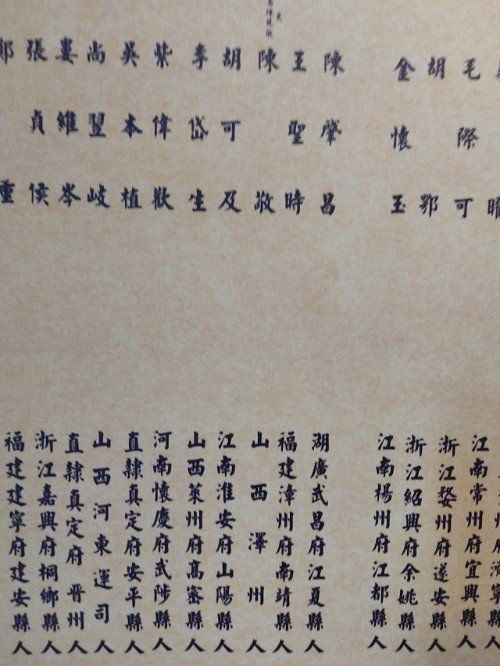 江南常州府宜興縣人
毛際可 浙江婺州府遂安縣人
胡鄂 浙江紹興府余姚縣人
金懷玉 江南楊州府江都縣人
陳肇昌 湖廣武昌府江夏縣人
王聖時 福建漳州府南靖縣人
陳敬 山西澤州人
胡可及 江南淮安府山陽縣人
李岱生 山西萊州府高密縣人
柴偉歡 河南懷慶府武陟縣人
吳本植 直隸真定府安平縣人
尚翌岐 山西河東運司人
婁維岑 直隸真定府晋州人
張貞侯 浙江嘉興府桐鄉縣人
鄭重 福建建寧府建安縣人